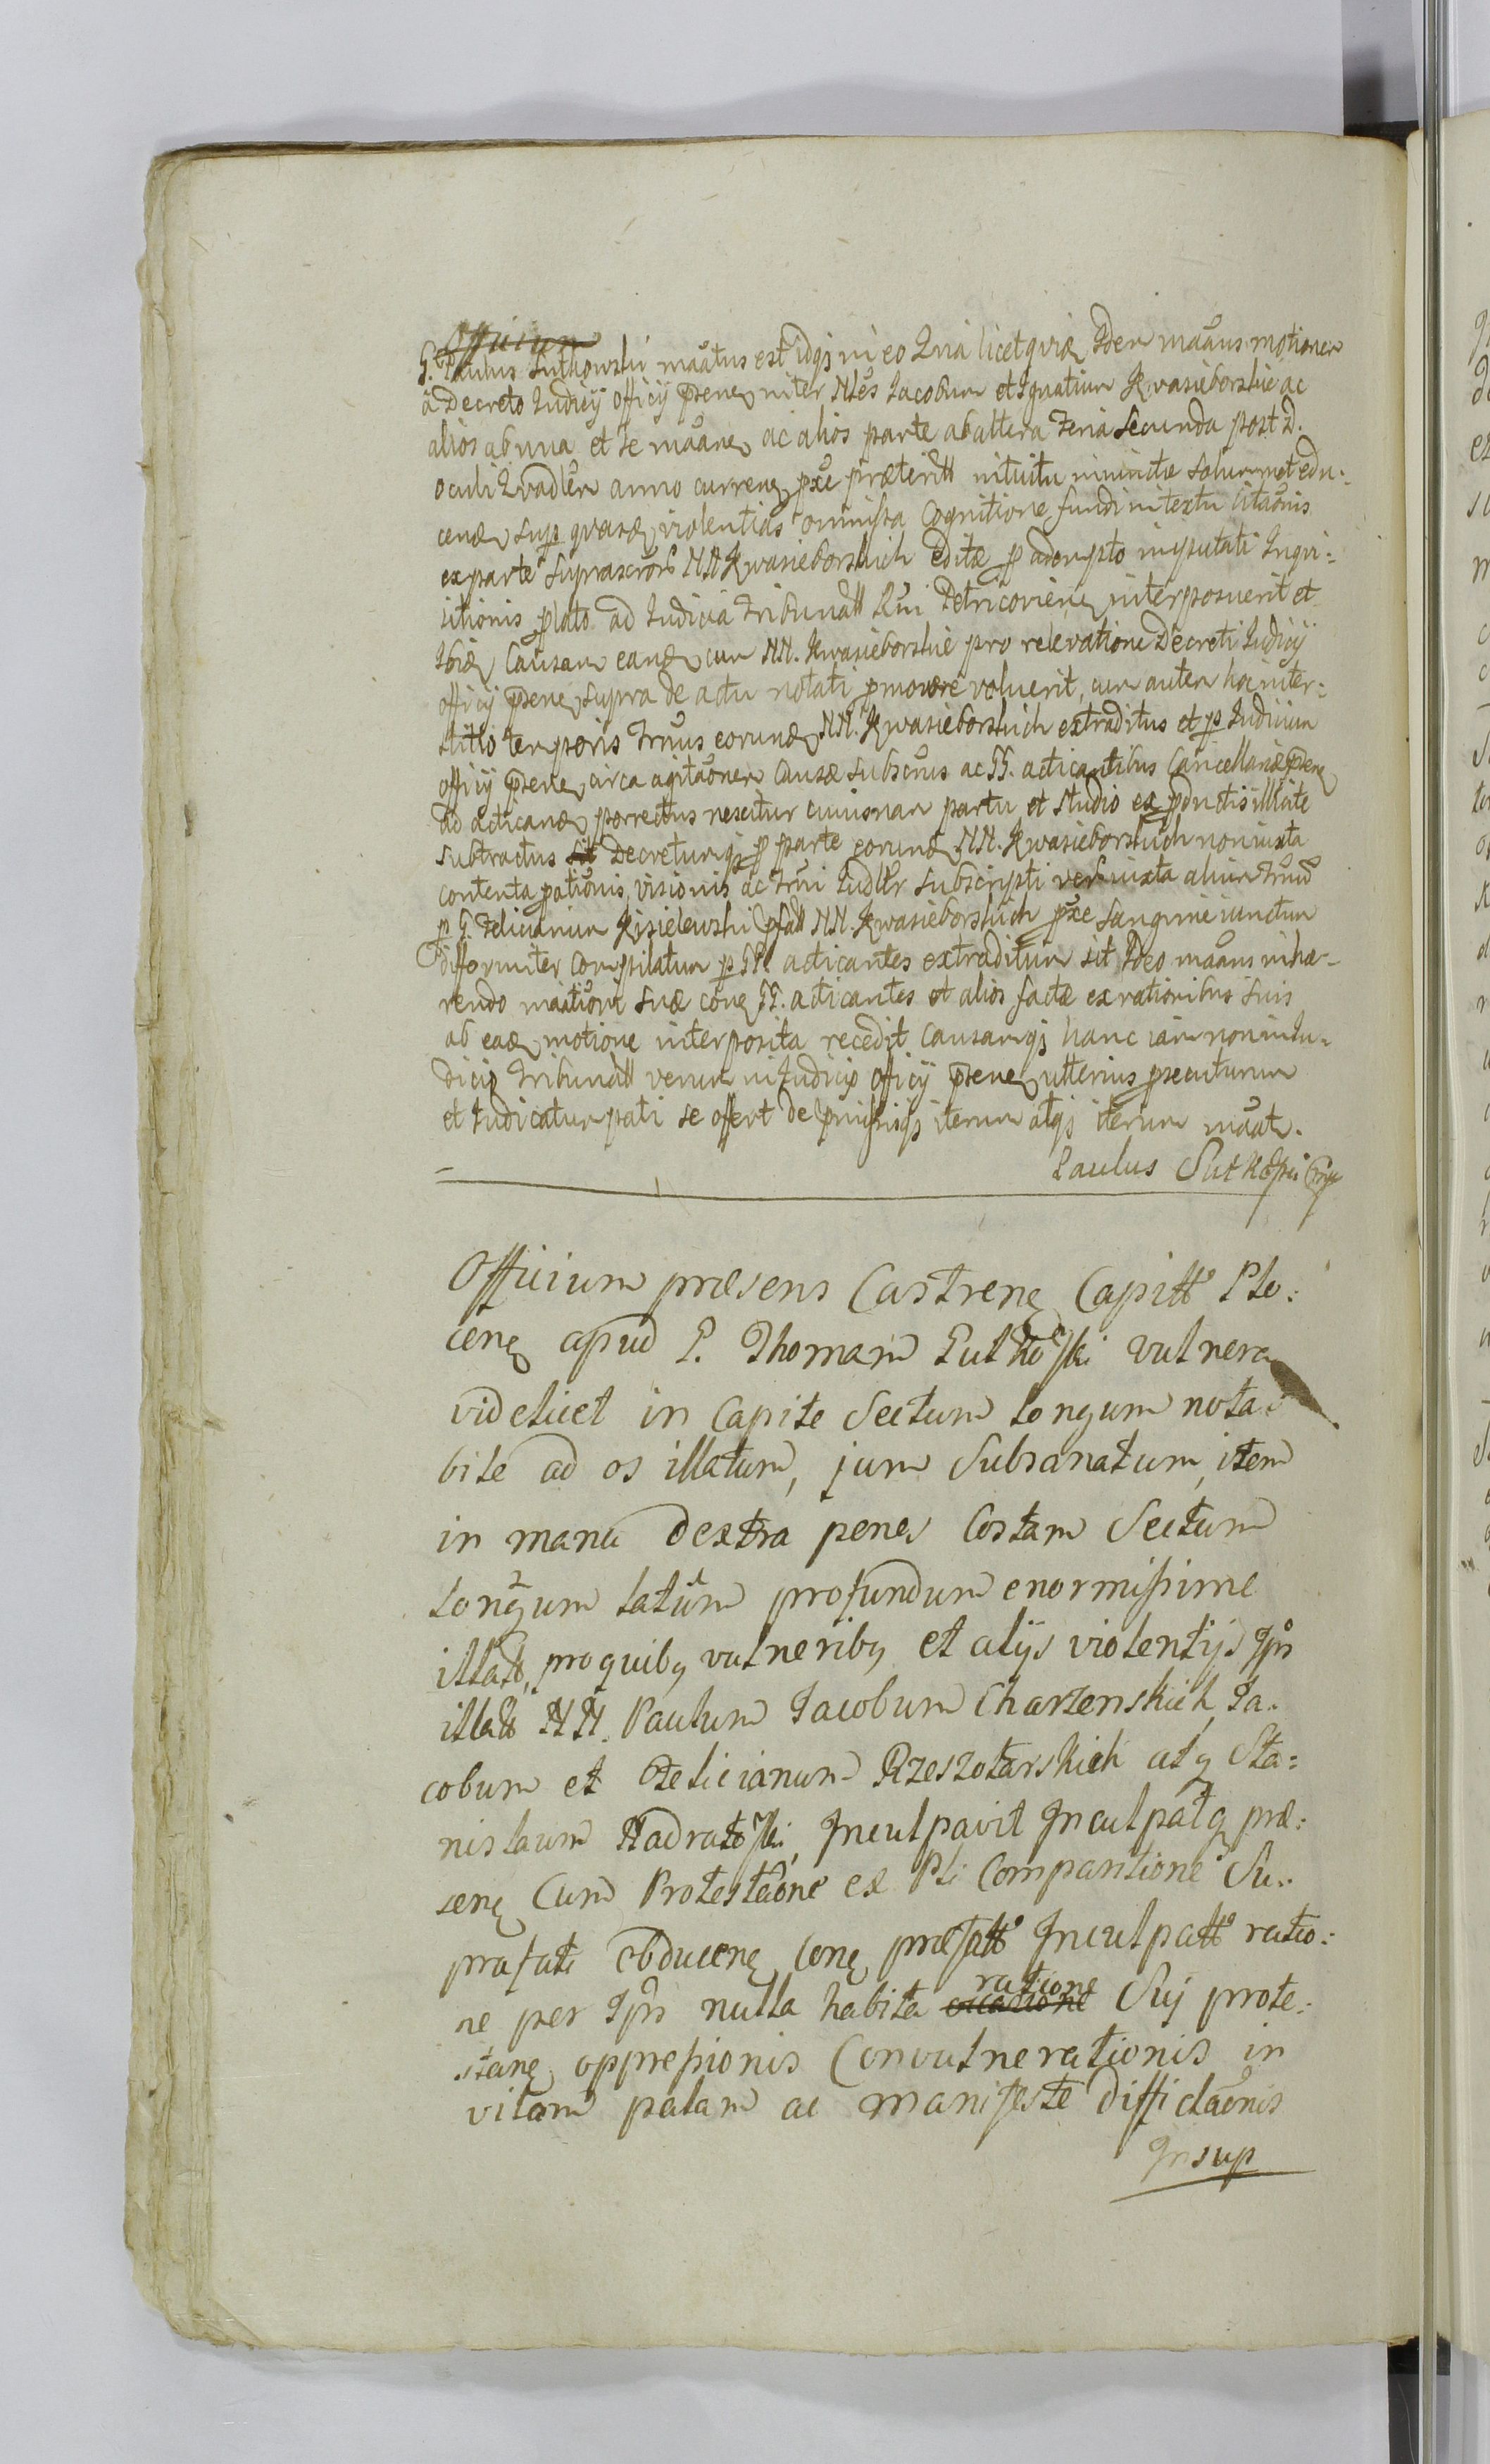 Officium
G. Paulus Sutkowski maãtus est idqj in eo Quia licet quidẽ Idem maãns motionem
à Decreto Iudicij officij pñs inter Nles Iacobum et Ignatium Kwasieborskie ac
alios ab una et se maãnẽ ac alios parte ab altera Feria Secunda post D.
oculi Quadler anno currenẽ pxe præteritt intuitu iniunctæ solummet edu-
cenẽ sup quasdẽ violentias omissa Cognitione fundi in textu Citaõnis
ex parte suprascrõr NN Kwasieborskich editæ p adempto imputati Inqui-
sitionis plato ad Iudicia Tribunatt Rni Petricovienẽ interposuerit et
Ibidẽ Causam eandẽ cum NN. Kwasieborskie pro relevatione Decreti Iudicij
officij pñs supra de actu notati pmovere voluerit, cum autem hoc inter-
stitio temporis Trnus eorundẽ NN. Kwasieborskich extraditus et p Iudicium
officij pñs circa agitaõnem Causæ subscrus ac GG. acticantibus Cancellariæ pñs
ad acticandẽ porrectus nescitur cuiusnam partu et studio ex pductis illicite
subtractus sit Decretumqj p parte eorundẽ NN. Kwasieborskich non iuxta
contenta pationis, visionis ac Trni Iudler subscripti verum iuxta alium Trnũ
p G. Felicianum Kisielewski pfatt NN. Kwasieborskich pxe sanguine iunctum
difformiter Compilatum p GG. acticantes extraditum sit Ideo maãns inhæ-
rendo maãtioni suæ coñ GG. acticantes et alios factæ ex rationibus suis
ab eadẽ motione interposita recedit Causamqj hanc iam non in Iu-
dicijs Tribunatt verum in Iudicijs Officij pñs ulterius psecuturum
et Iudicatum pati se offert de pmissisqj iterum atqj iterum maãt.
Paulus Sutkoski
Officium præsens Castrenẽ Capitt Plo:
cenẽ apud G. Thomam Sutkoski vulnera
videlicet in Capite Sectum longum nota-
bile ad os illatum, jam Subsanatum, item
in manu dextra penes Costam Sectum
longum latum profundum enormissime
illatt, pro quibq vulneribq et alijs violentijs Ipi
illatt NN. Paulum Iacobum Charzenskich, Ia-
cobum et Felicianum Rzeszotarskich atq Sta:
nislaum Nadratoski, Inculpavit Inculpatq præ:
senẽ Cum Protestaõne ex Pti Comparitione Su-
prafati Obducenẽ Conẽ præfatt Inculpatt ratio:
ne per Ipõs nulla habita occasione ratione Sui prote-
stanẽ oppressionis Convulnerationis in
vitam palam ac manifeste diffidaõnis
Insup